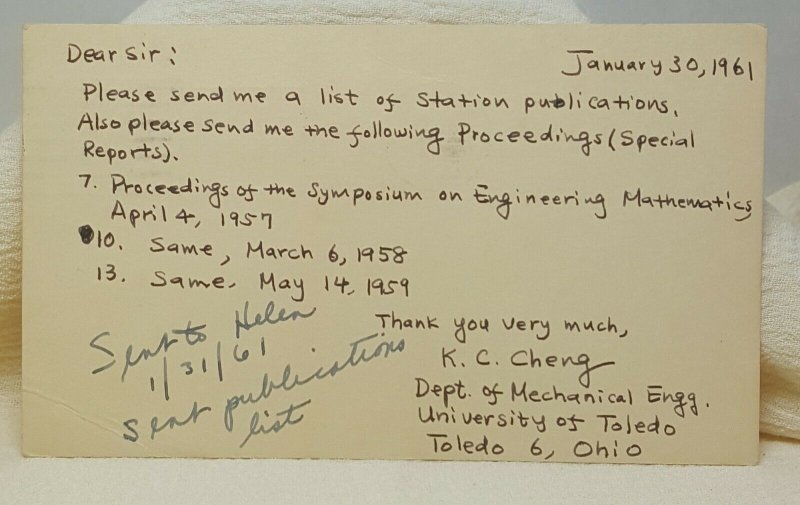 Dear Sir:
January 30, 1961
Please send me a list of Station publications.
Also please send me the following Proceedings (Special
Reports).
7. Proceedings of the Symposium on Engineering Mathematics
April 4, 1957
10. Same, March 6, 1958
13. Same. May 14, 1959
Thank you very much,
K. C. Cheng
Dept. of Mechanical Engg.
University of Toledo
Toledo 6, Ohio
Sent to Helen
1/31/61
Sent publications
list